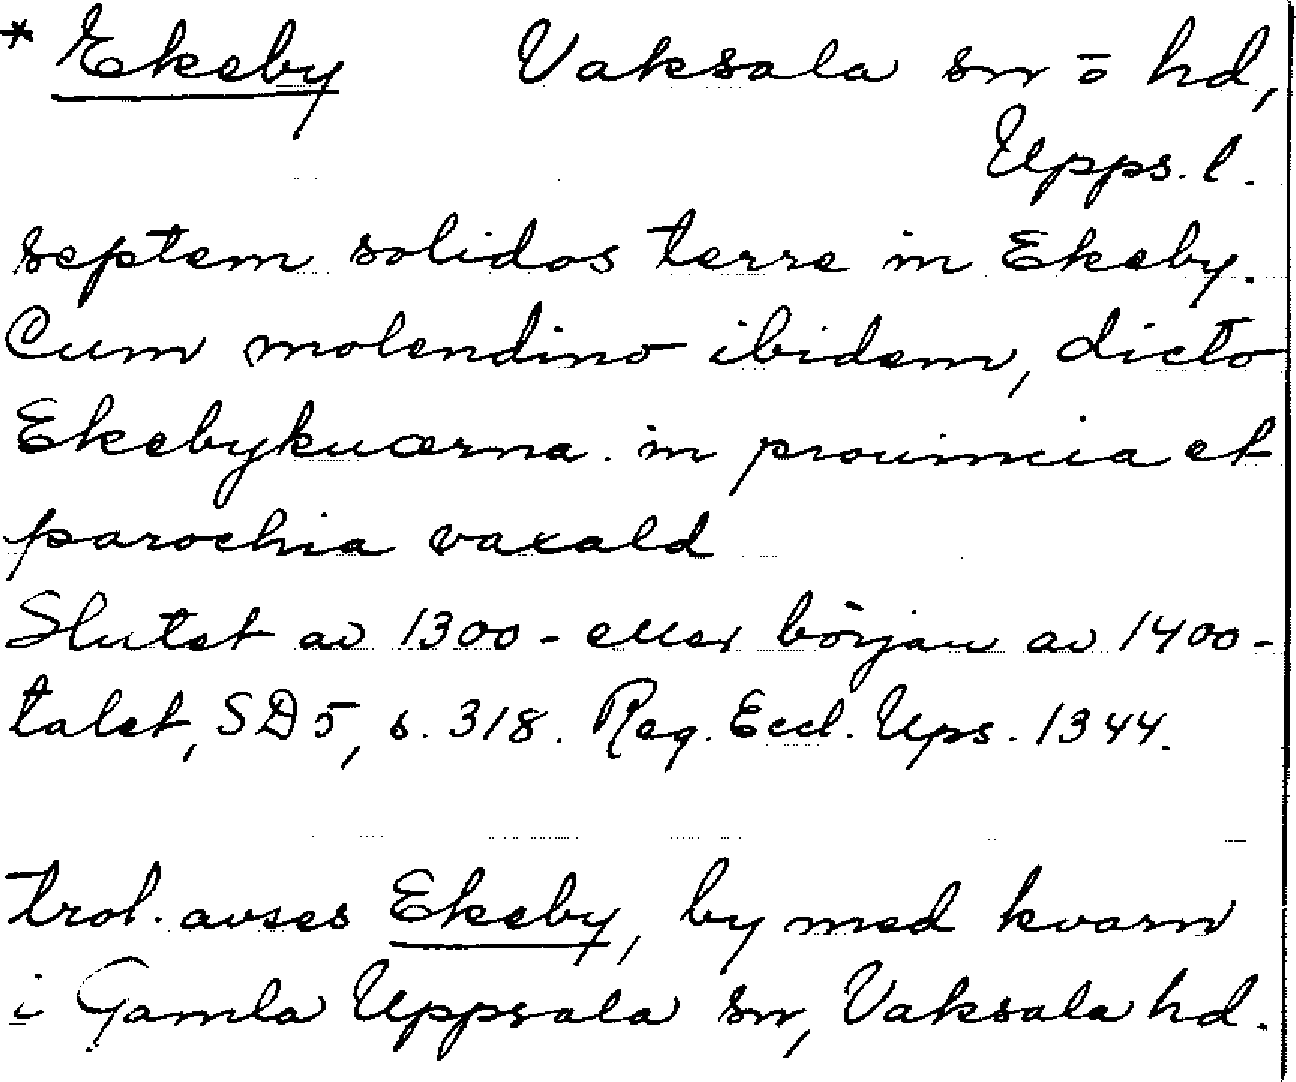 * Ekeby Vaksala sn o hd,
Upps. l.
septem solidos terre in Ekeby.
Cum molendino ibidem, dicto
Ekebykuærna. in prouincia et
parochia vaxald
Slutet av 1300- eller början av 1400-
talet, SD5, s. 318. Reg. Eccl. Ups. 1344.
trol. avses Ekeby, by med kvarn
i Gamla Uppsala sn, Vaksala hd.